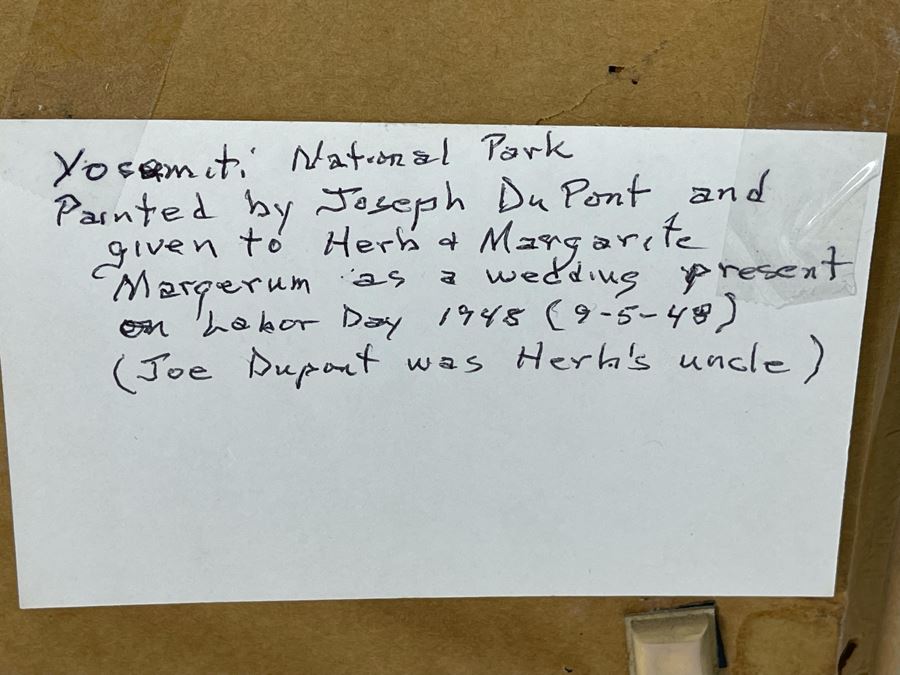 Yosemiti National Park
Painted by Joseph DuPont and
given to Herb & Margarite
Margerum as a wedding present
on Labor Day 1948 (9-5-48)
(Joe Dupont was Herb's uncle)